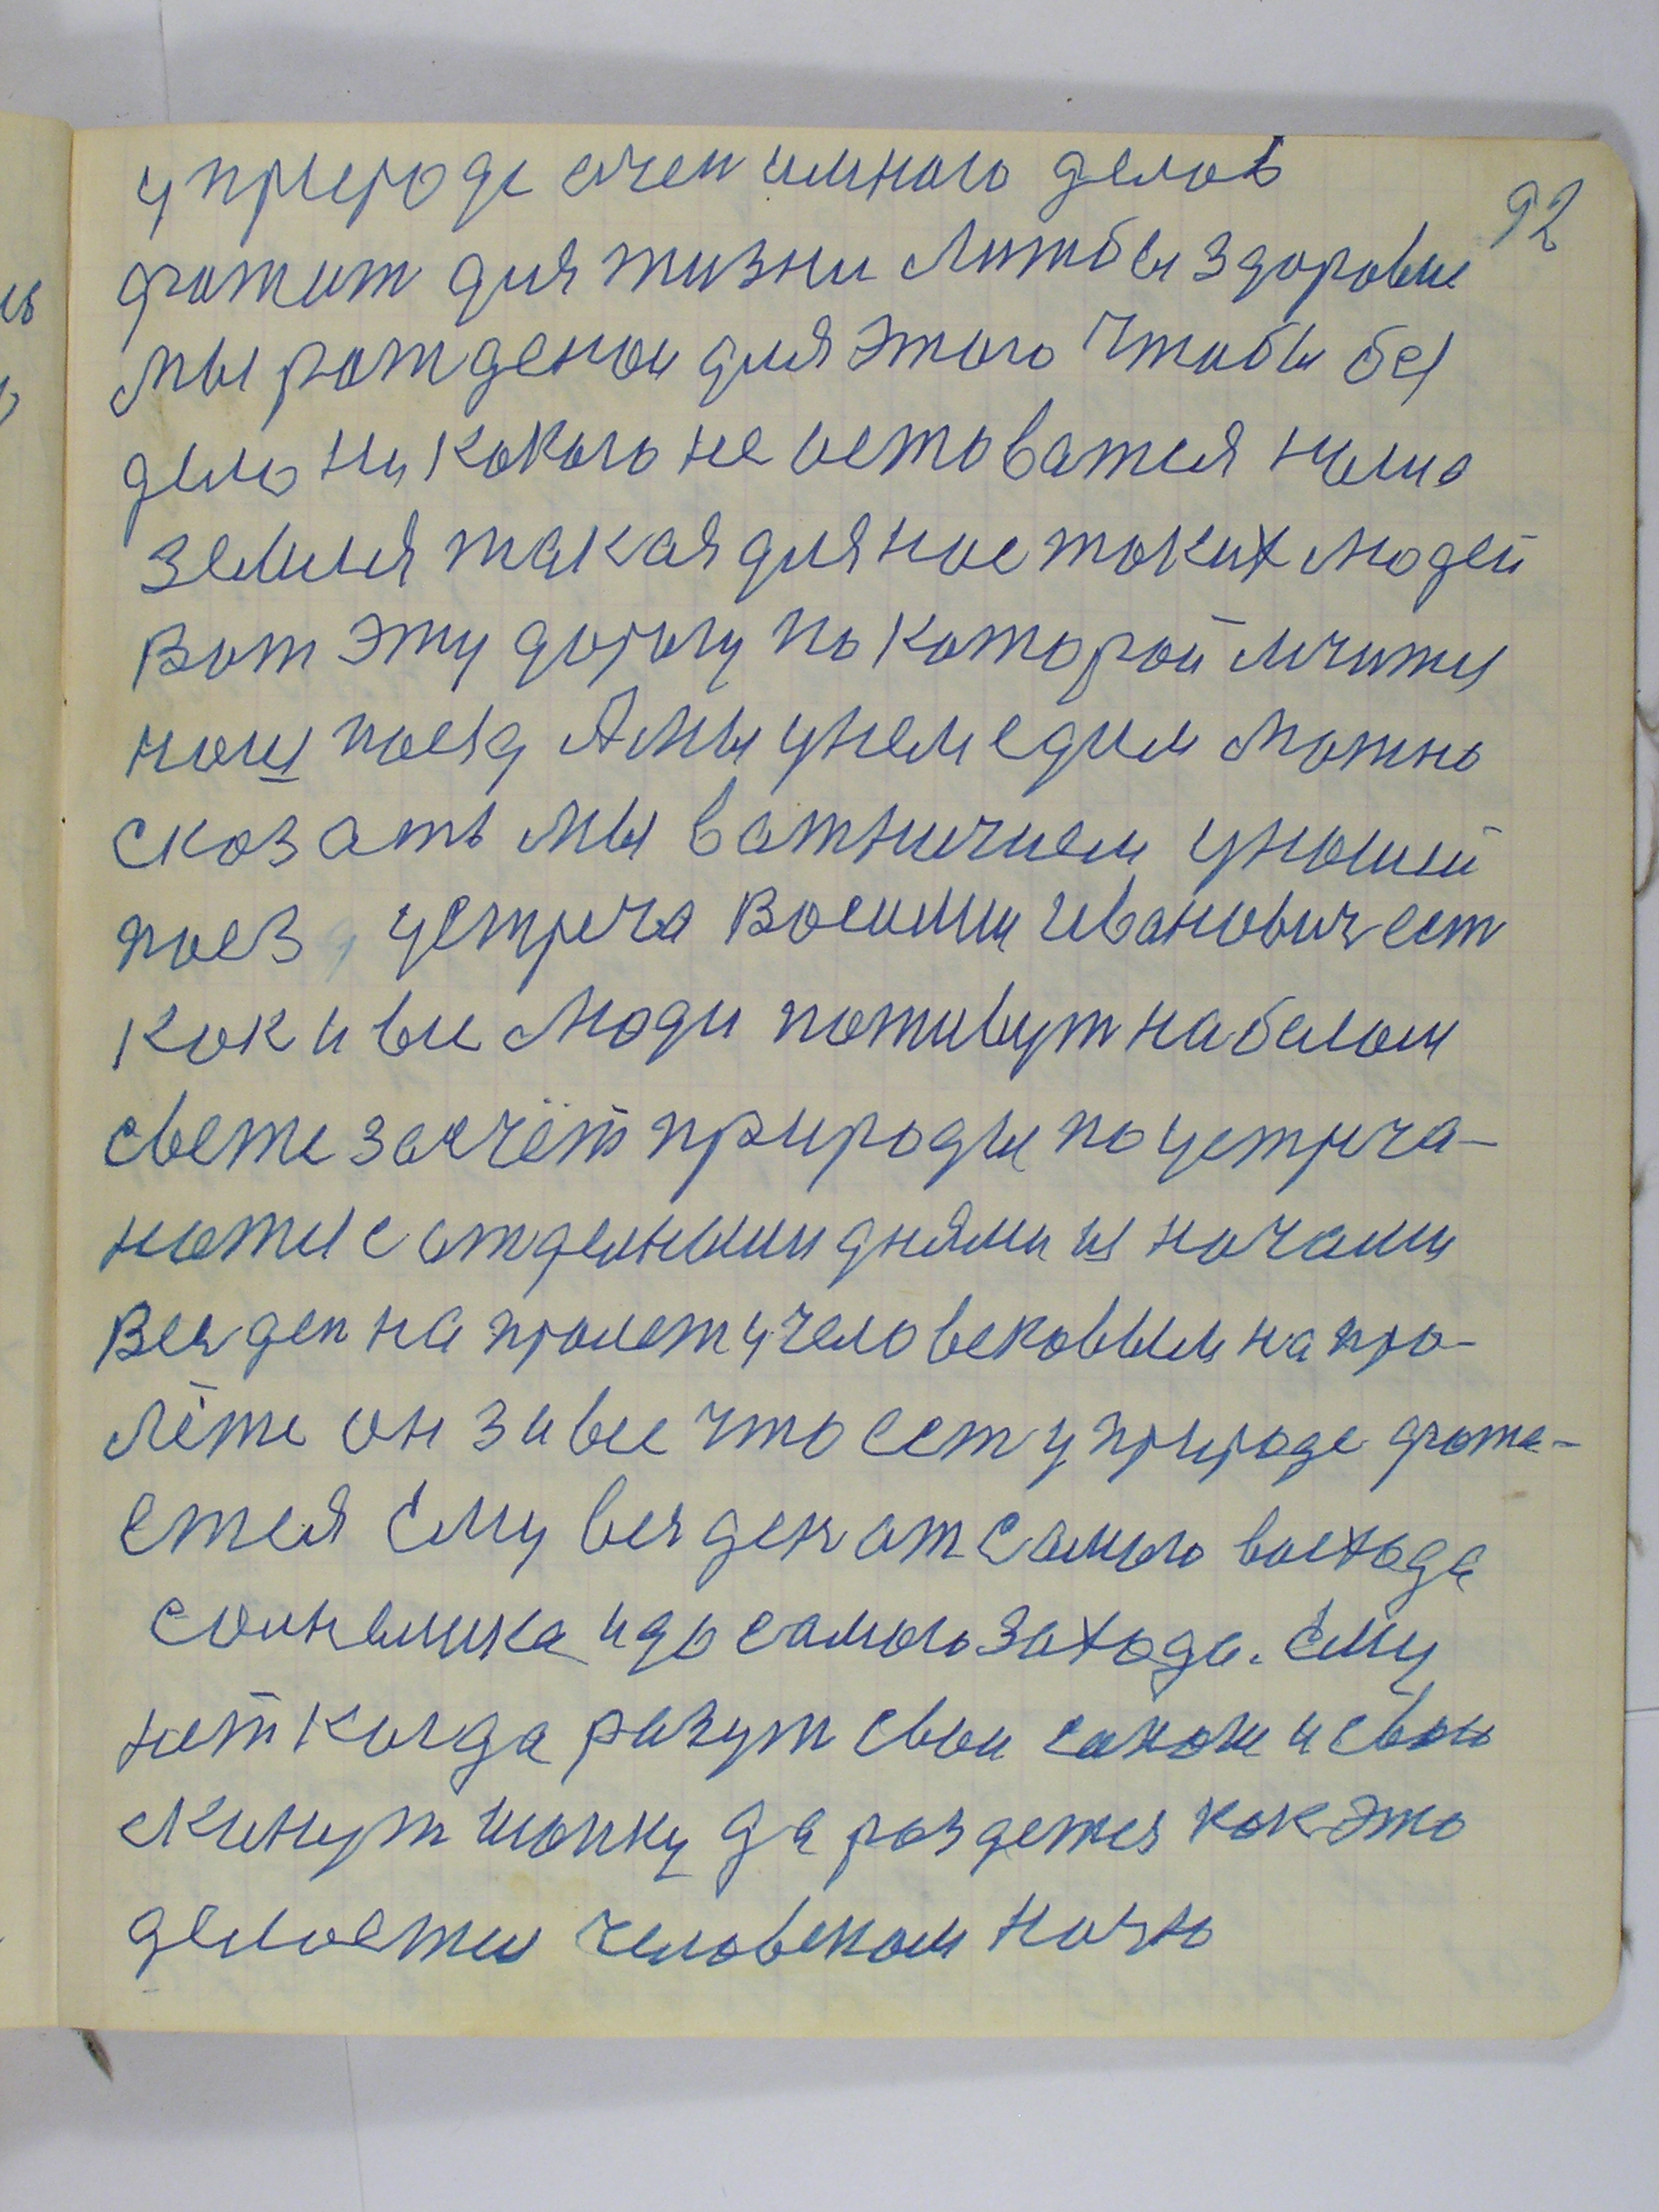 92
у природе очен имного делов
дражит для жизни Лижбы здоровие
мы рожденои для этого чтобы без
дело ни кокого не остоватся наша
земля такая для нос токих людей
Вот эту дорогу по которой мчится
нош поезд А мы у нем едим можно
сказать мы в отничием у нашей
поезд устреча Восилий Иванович ест
кок и все люди поживут на белом
свете за счёт природы по устреча-
ются с отделными днями и ночами
Вез ден на пролет у человековым на про-
лёте он зи все что ест у природе
ется ему вез ден от самого восхода
солнышка и до самого захода. ему
нет когда разут свои сапоги и свою
скинут шопку да роздется кок это
делоется человеком ночю